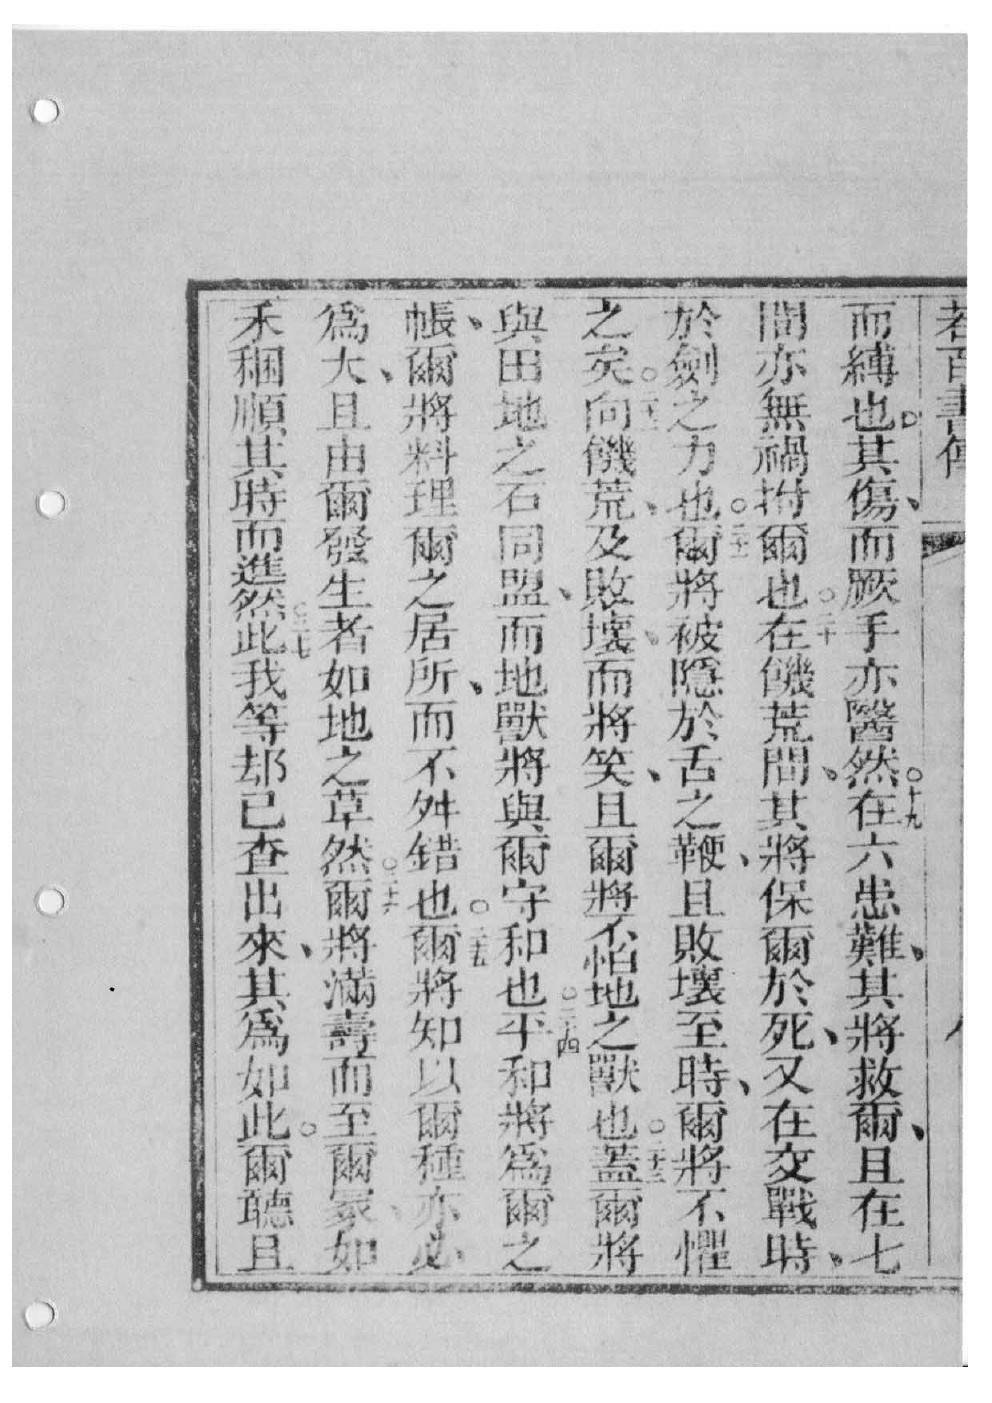 若百書傳
而縛也。其傷、而厥手亦醫。十九然在六患難、其將救爾、且在七
間亦無禍拊爾也。二十在饑荒間、其將保爾於死、又在交戰時、
於劍之力也。二十一爾將被隱於舌之鞭、且敗壞至時、爾將不懼
之矣。二十二向饑荒、及敗壞、而將笑、且爾將不怕地之獸也。二十三蓋爾將
與田地之石同盟、而地獸將與爾守和也。二十四平和將爲爾之
帳、爾將料理爾之居所、而不舛錯也。二十五爾將知以爾種亦必
爲大、且由爾發生者如地之草。二十六然爾將滿壽而至爾冢、如
禾稇順其時而進然。二十七此我等却已查出來、其爲如此。爾聽且